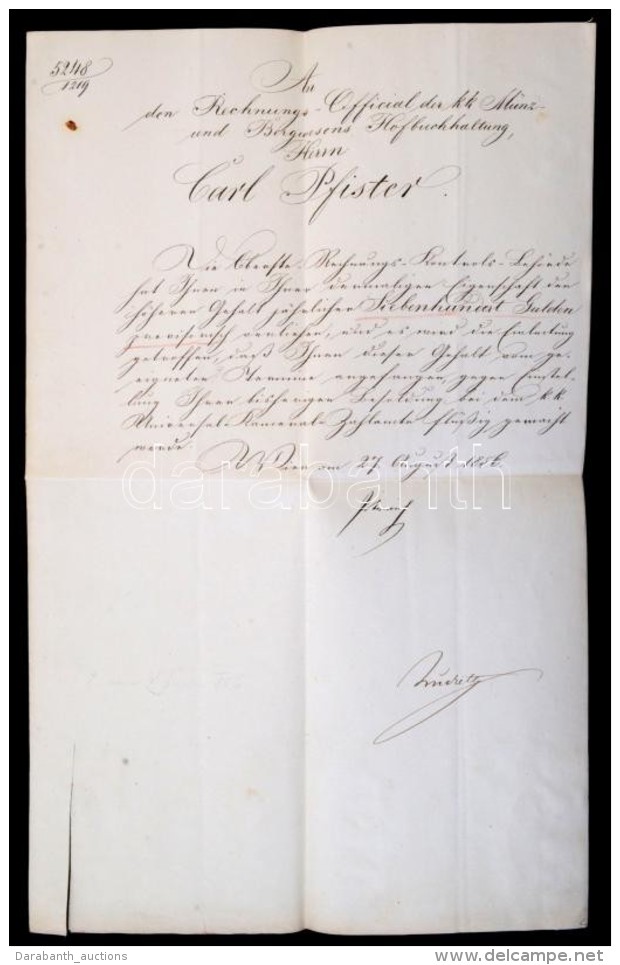 5248
1219
An
den Rechnungs-Official der kk Münz-
und Bergwesens Hofbuchhaltung,
Herrn
Carl Pfister.
Die Oberste Rechnungs-Kontrols-Behörde
hat Ihnen in Ihrer dermaligen Eigenschaft den
höheren Gehalt jährlicher Siebenhundert Gulden
provisorisch verliehen, und es wird die Einleitung
getroffen, daß Ihnen dieser Gehalt vom ge-
eigneten Termine angefangen, gegen Einstel-
lung Ihrer bisherigen Besoldung bei dem k.k.
Universal-Kameral-Zahlamte flüßig gemacht
werde.
Wien am 27. August 1856.
darabanth
Darabanth_auctions
http://www.delcampe.net